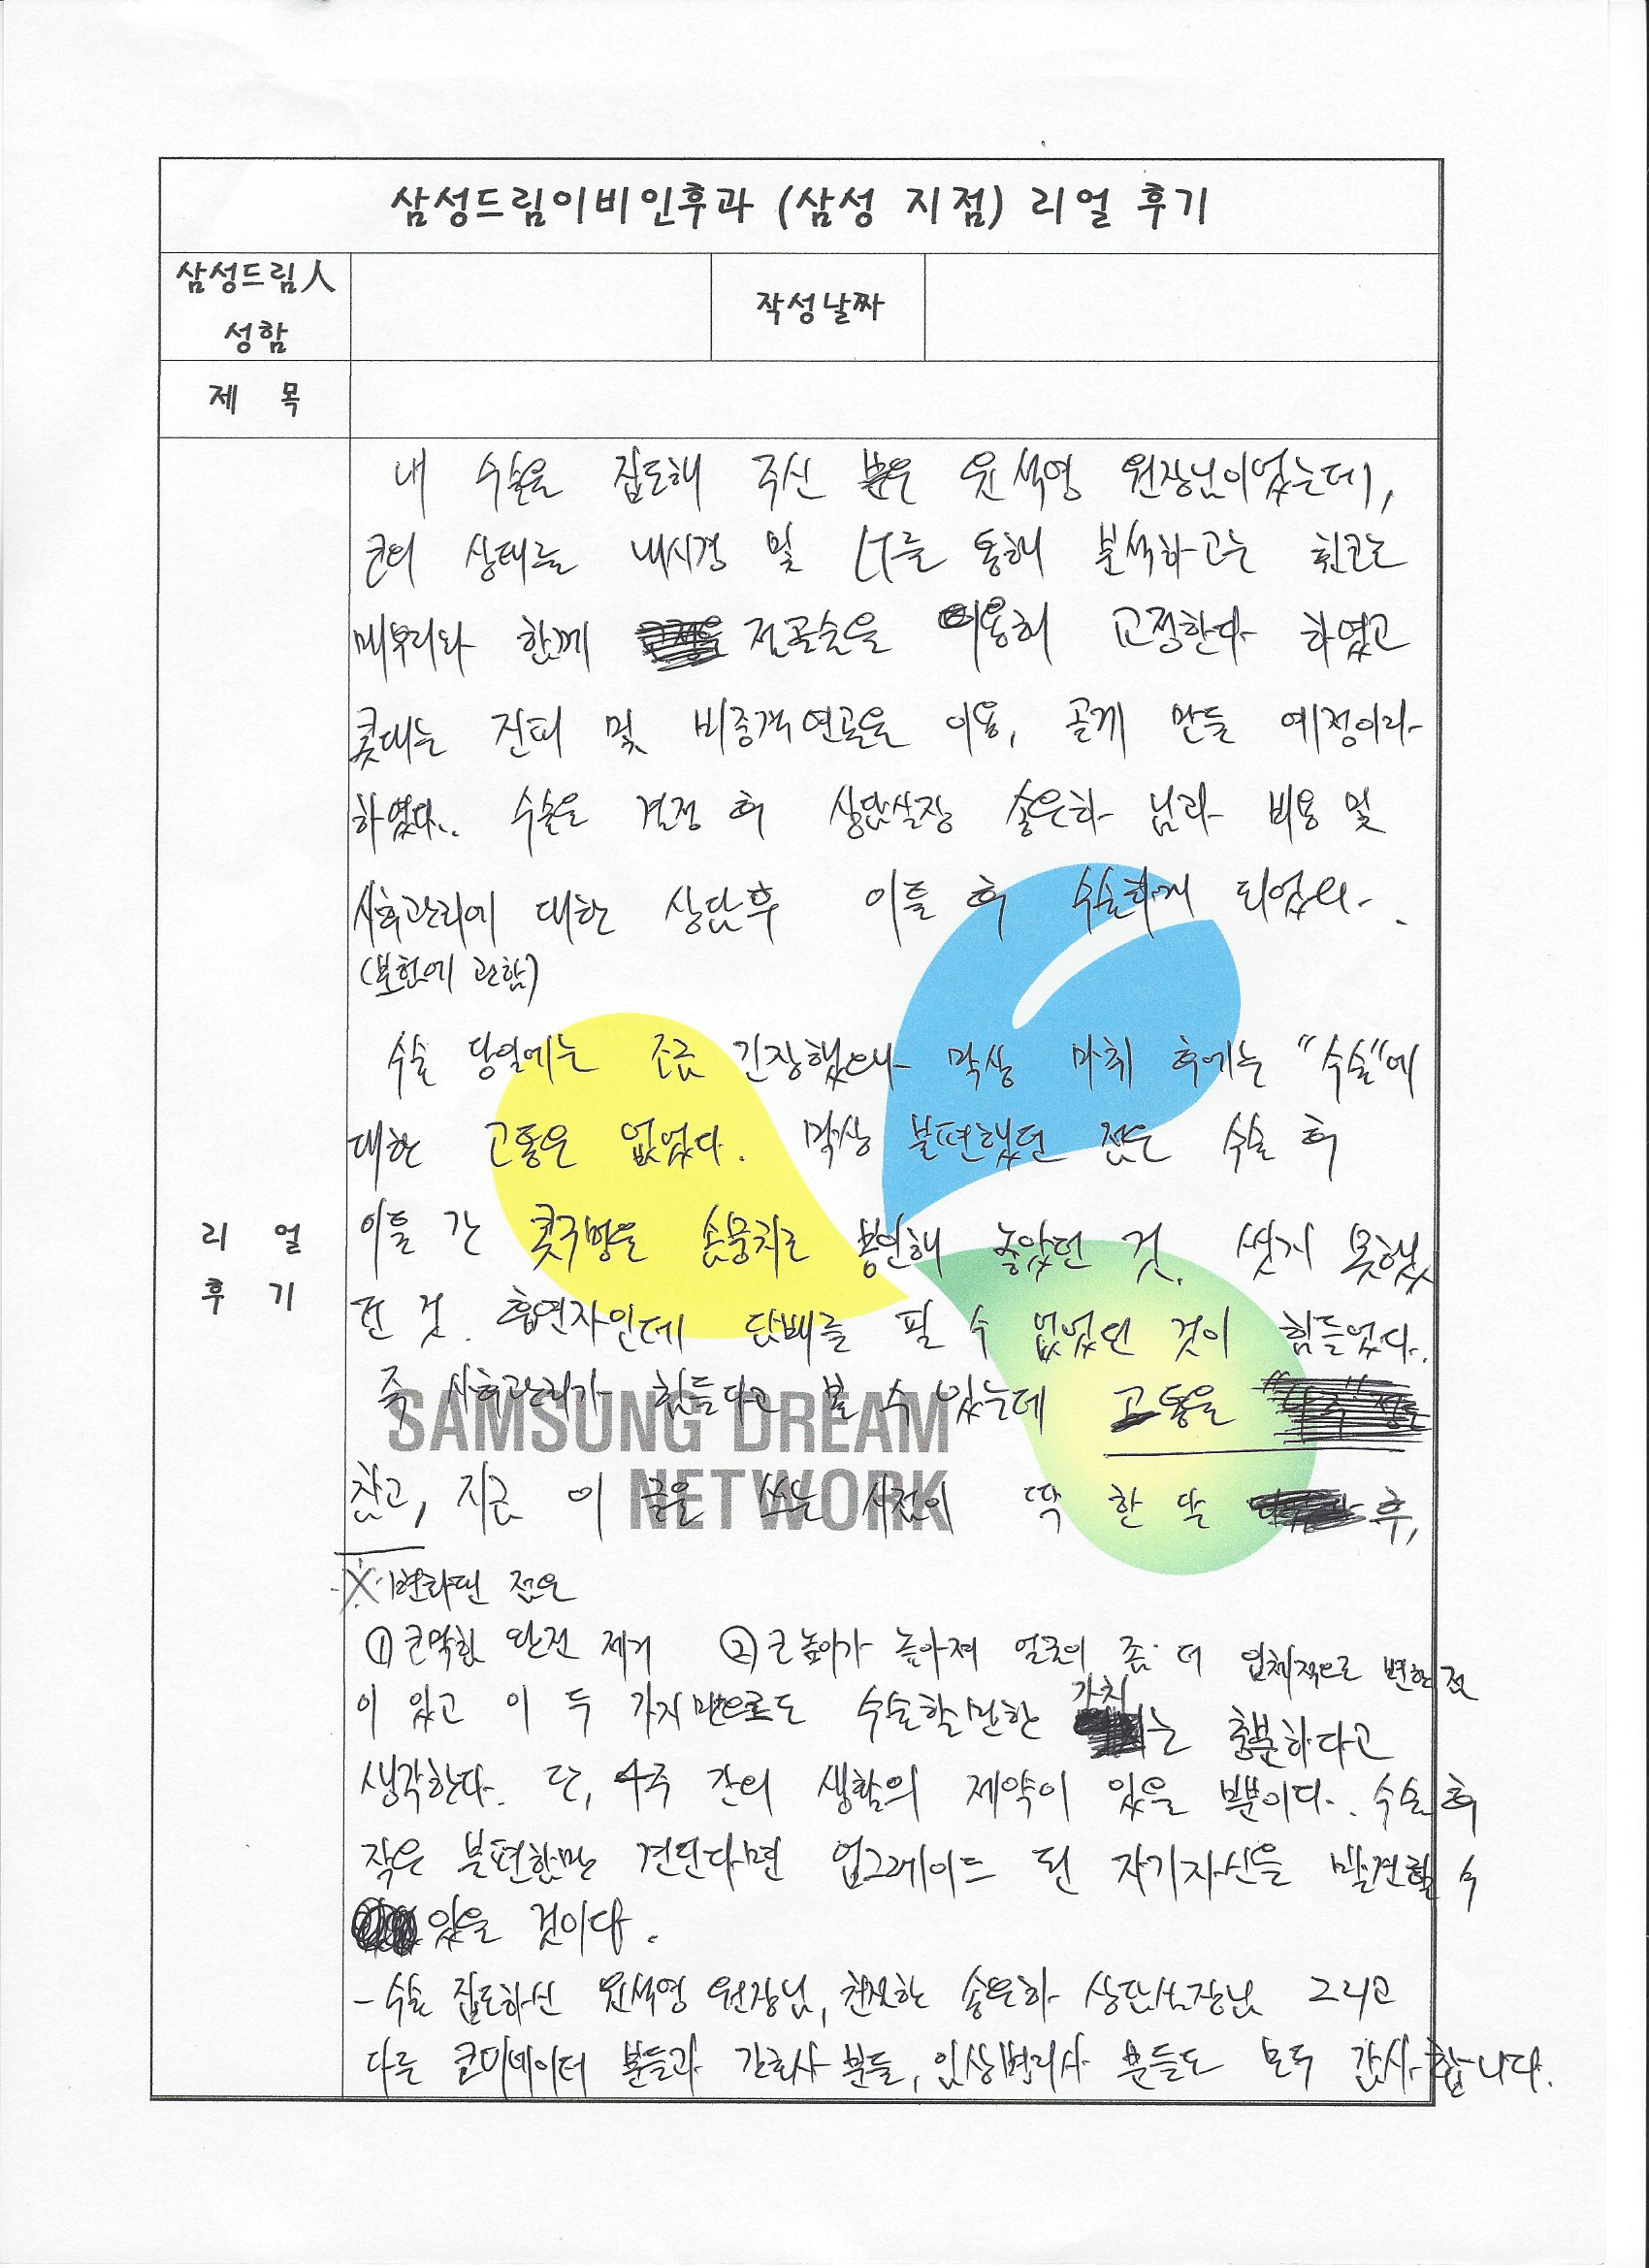 삼성드림이비인후과 (삼성 지점) 리얼 후기
삼성드림人
성함
작성날짜
제 목
리 얼
후 기
내 수술을 집도해 주신 분은 윤석영 원장님이었는데,
코의 상태를 내시경 및 CT를 통해 분석하고는 휜코는
매부리와 함께 절골술을 이용해 교정한다 하였고
콧대는 진피 및 비중격연골을 이용, 곧게 만들 예정이라
하였다.. 수술을 결정 후 상담실장 송은하 님과 비용 및
사후관리에 대한 상담후 이틀 후 수술하게 되었다.
(보험에 관함)
수술 당일에는 조금 긴장했으나 막상 마취 후에는 "수술"에
대한 고통은 없었다. 막상 불편했던 점은 수술 후
이틀 간 콧구멍을 솜뭉치로 봉인해 놓았던 것, 씻지 못했
던 것. 흡연자인데 담배를 필 수 없었던 것이 힘들었다.
즉 사후관리가 힘들다고 볼 수 있는데 고통을
참고, 지금 이 글을 쓰는 시점이 딱 한 달 후,
※ 변화된 점은
① 코막힘 완전 제거 ② 코높이가 높아져 얼굴이 좀 더 입체적으로 변한 점
이 있고 이 두 가지만으로도 수술할만한 가치는 충분하다고
생각한다. 단, 4주 간의 생활의 제약이 있을 뿐이다.. 수술 후
작은 불편함만 견딘다면 업그레이드 된 자기자신을 발견할 수
있을 것이다.
- 수술 집도하신 윤석영 원장님, 친절한 송은하 상담실장님 그리고
다른 코디네이터 분들과 간호사 분들, 임상병리사 분들도 모두 감사합니다.
SAMSUNG DREAM
NETWORK